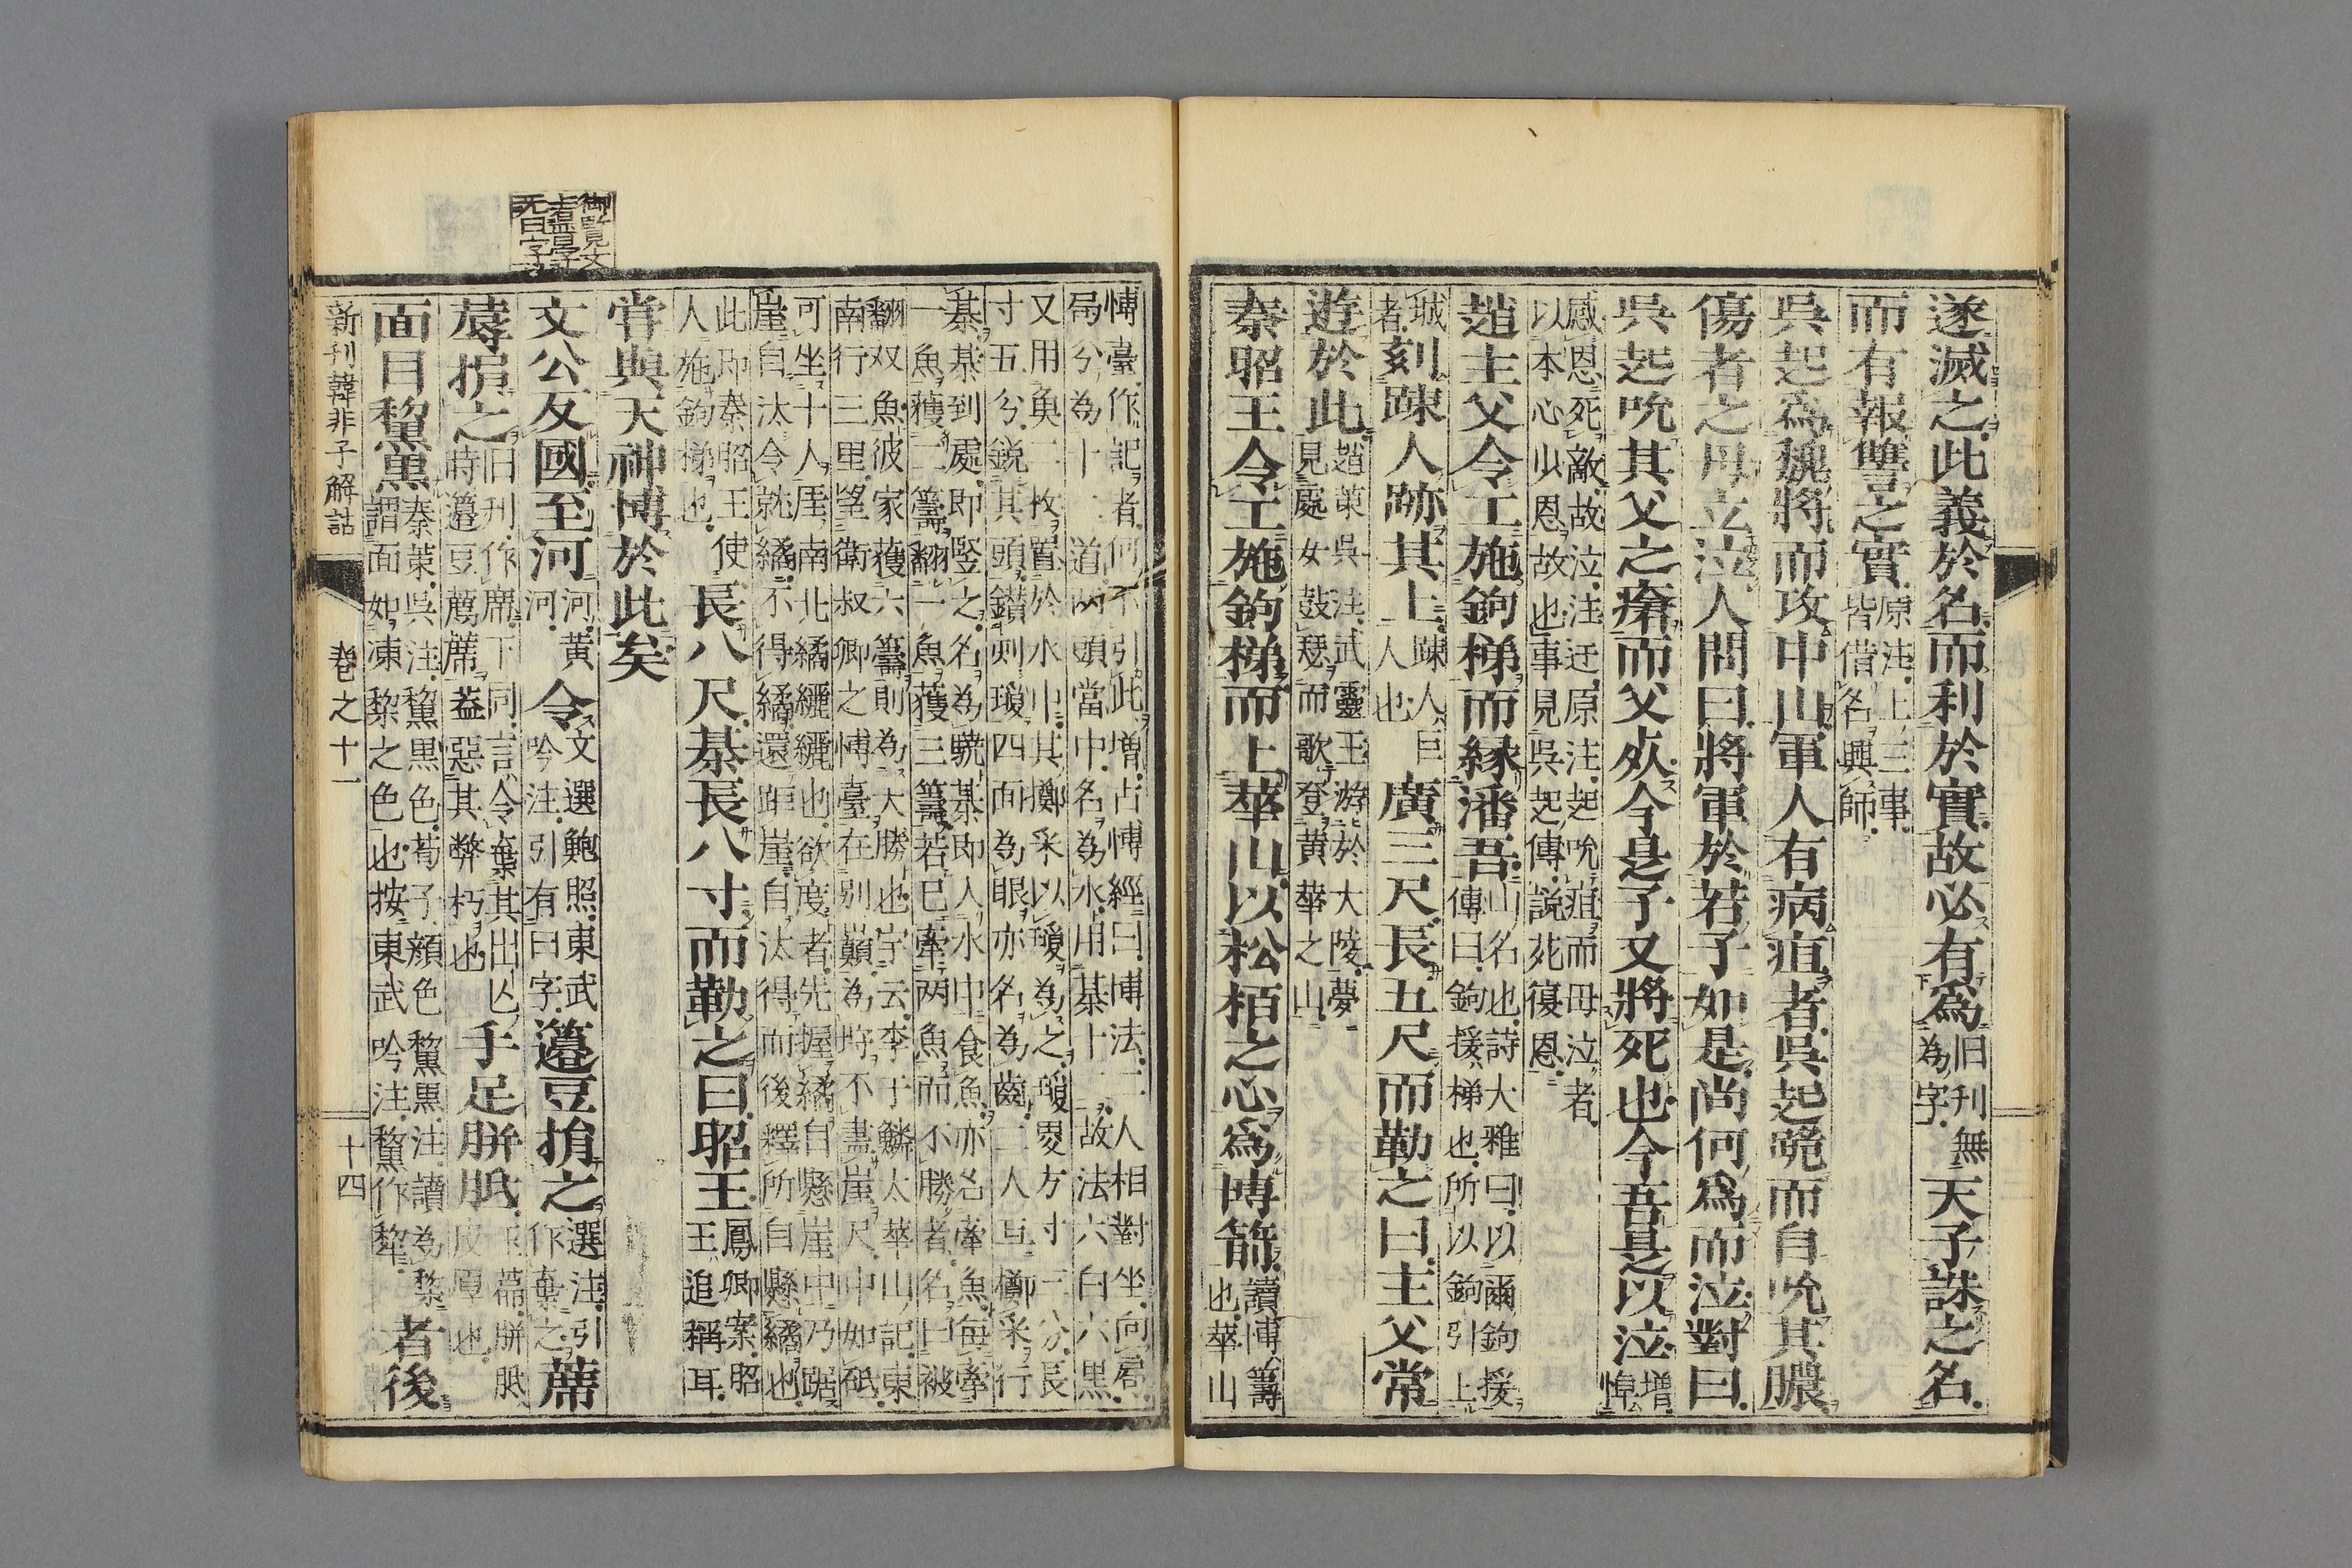 遂滅之此義於名而利於實故必有爲旧刊無爲字天子誅之名
而有報讐之實原注上三事皆借名興師
吳起爲魏將而攻中山軍人有病疽者吳起跪而自吮其膿
傷者之母立泣人問曰將軍於若子如是尚何爲而泣對曰
吳起吮其父之瘡而父死今是子又將死也今吾是以泣增悼
感恩死敵故泣注迂原注起吮疽而母泣者以本心以恩故也事見吳起傳說苑復恩
趙主父令工施鉤梯而緣潘吾山名也詩大雅曰以爾鉤援傳曰鉤援梯也所以鉤引上
城者刻踈人跡其上踈人巨人也廣三尺長五尺而勒之曰主父常
遊於此趙策吳注武靈王游於大陵夢見處女鼓瑟而歌登黃華之山
秦昭王令工施鉤梯而上華山以松栢之心爲博箭讀博籌也華山
博臺作記者何不引此增占博經曰博法二人相對坐向局
局分為十二道兩頭當中名為水用棊十二故法六白六黑
又用魚二枚置於水中其擲采以瓊為之瓊畟方寸三分長
寸五分銳其頭鑽刻瓊四面為眼亦名為齒二人互擲采行
棊棊到處即竪之名為驍棊即入水中食魚亦名牽魚每牽
一魚獲二籌翻一魚獲三籌若已牽兩魚而不勝者名曰被
翻双魚彼家獲六籌則為大勝也字云李于鱗太華山記東
南行三里望衛叔卿之博臺在別巔為峙不盡崖尺中如砥
可坐十人厓南北繘纚纚也欲度者先握繘自懸崖中乃踞
崖自汰令就繘不得繘還距崖自汰得而後釋所自懸繘也
此即秦昭王使人施鉤梯也長八尺棊長八寸而勒之曰昭王鳳卿案昭王追稱耳
嘗與天神博於此矣
文公反國至河河黃河令文選鮑照東武吟注引有曰字籩豆捐之選注引作棄之蓆
蓐捐之旧刊作席下同言令棄其出亾時籩豆薦蓆葢惡其弊朽也手足胼胝玉篇胼胝皮厚也
面目黧黑秦策吳注黧黑色荀子顏色黧黑注讀為黎謂面如凍黎之色也按東武吟注黧作犂者後
御覽文
者盡曷字
无曰字
新刊韓非子解詁
卷之十一
十四